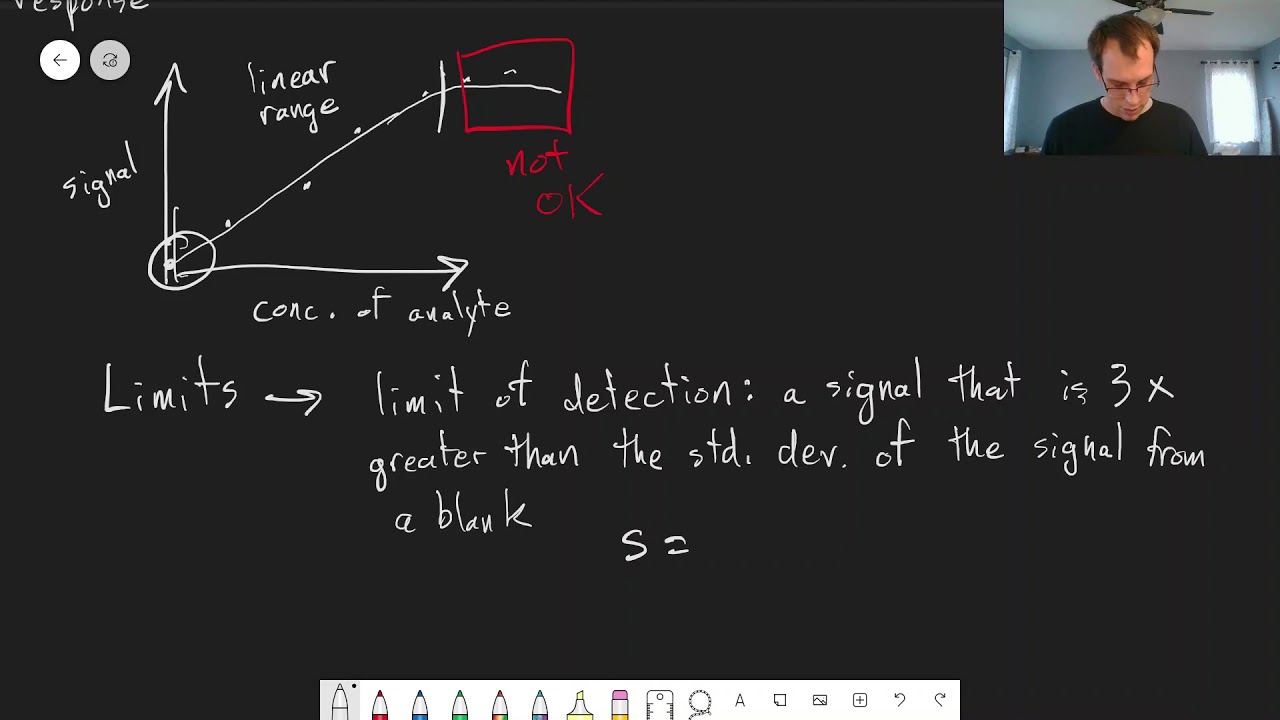 response
linear
range
signal
not
OK
conc. of analyte
Limits → limit of detection: a signal that is 3 x
greater than the std. dev. of the signal from
a blank
s =
A